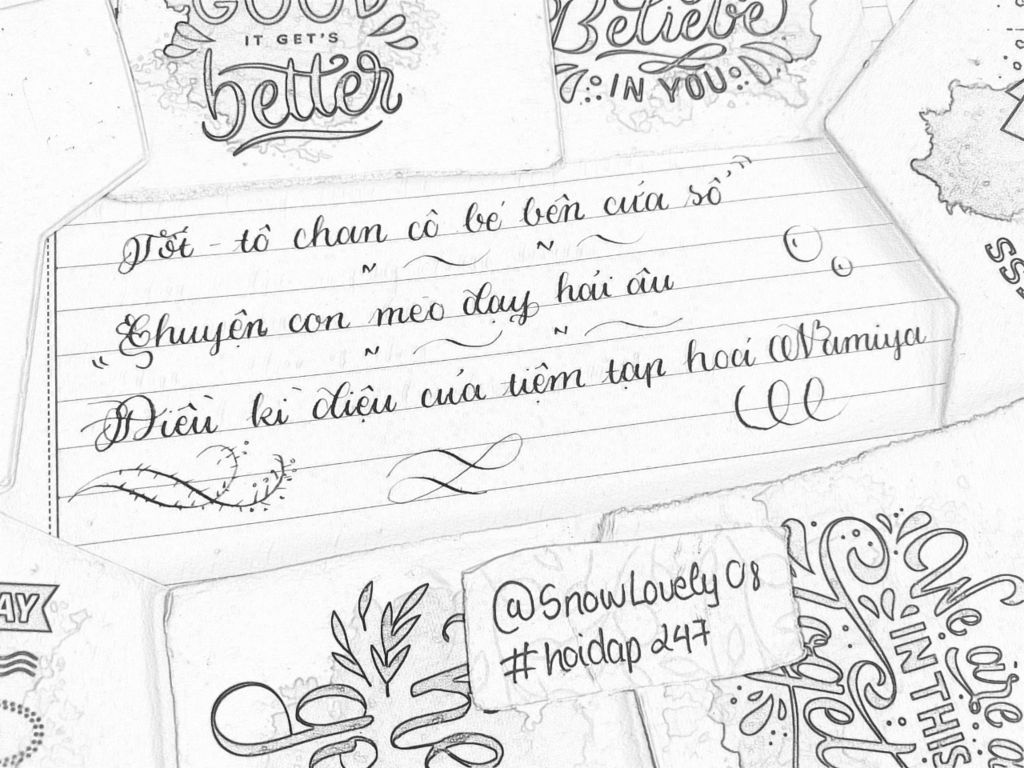 GOOD
IT GET'S
better
Believe
IN YOU
Tốt - tô chan cô bé bên cửa sổ
Chuyện con mèo dạy hải âu
Điều kì diệu của tiệm tạp hoá Namiya
@SnowLovely08
#hoidap247
We are
IN THIS
Together
AY